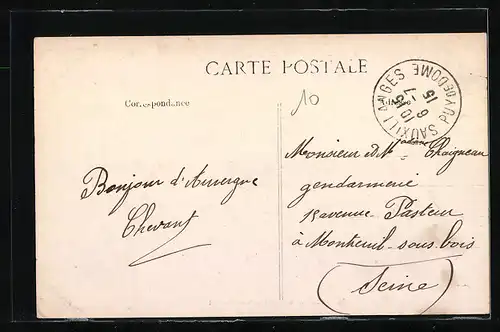 CARTE POSTALE
Correspondance
10
SAUXILLANGES PUY DE DOME
Bonjour d'Auvergne
Chevant
Monsieur et Me Chaigneau
gendarmerie
15 avenue Pasteur
à Montreuil-sous-bois
(Seine)